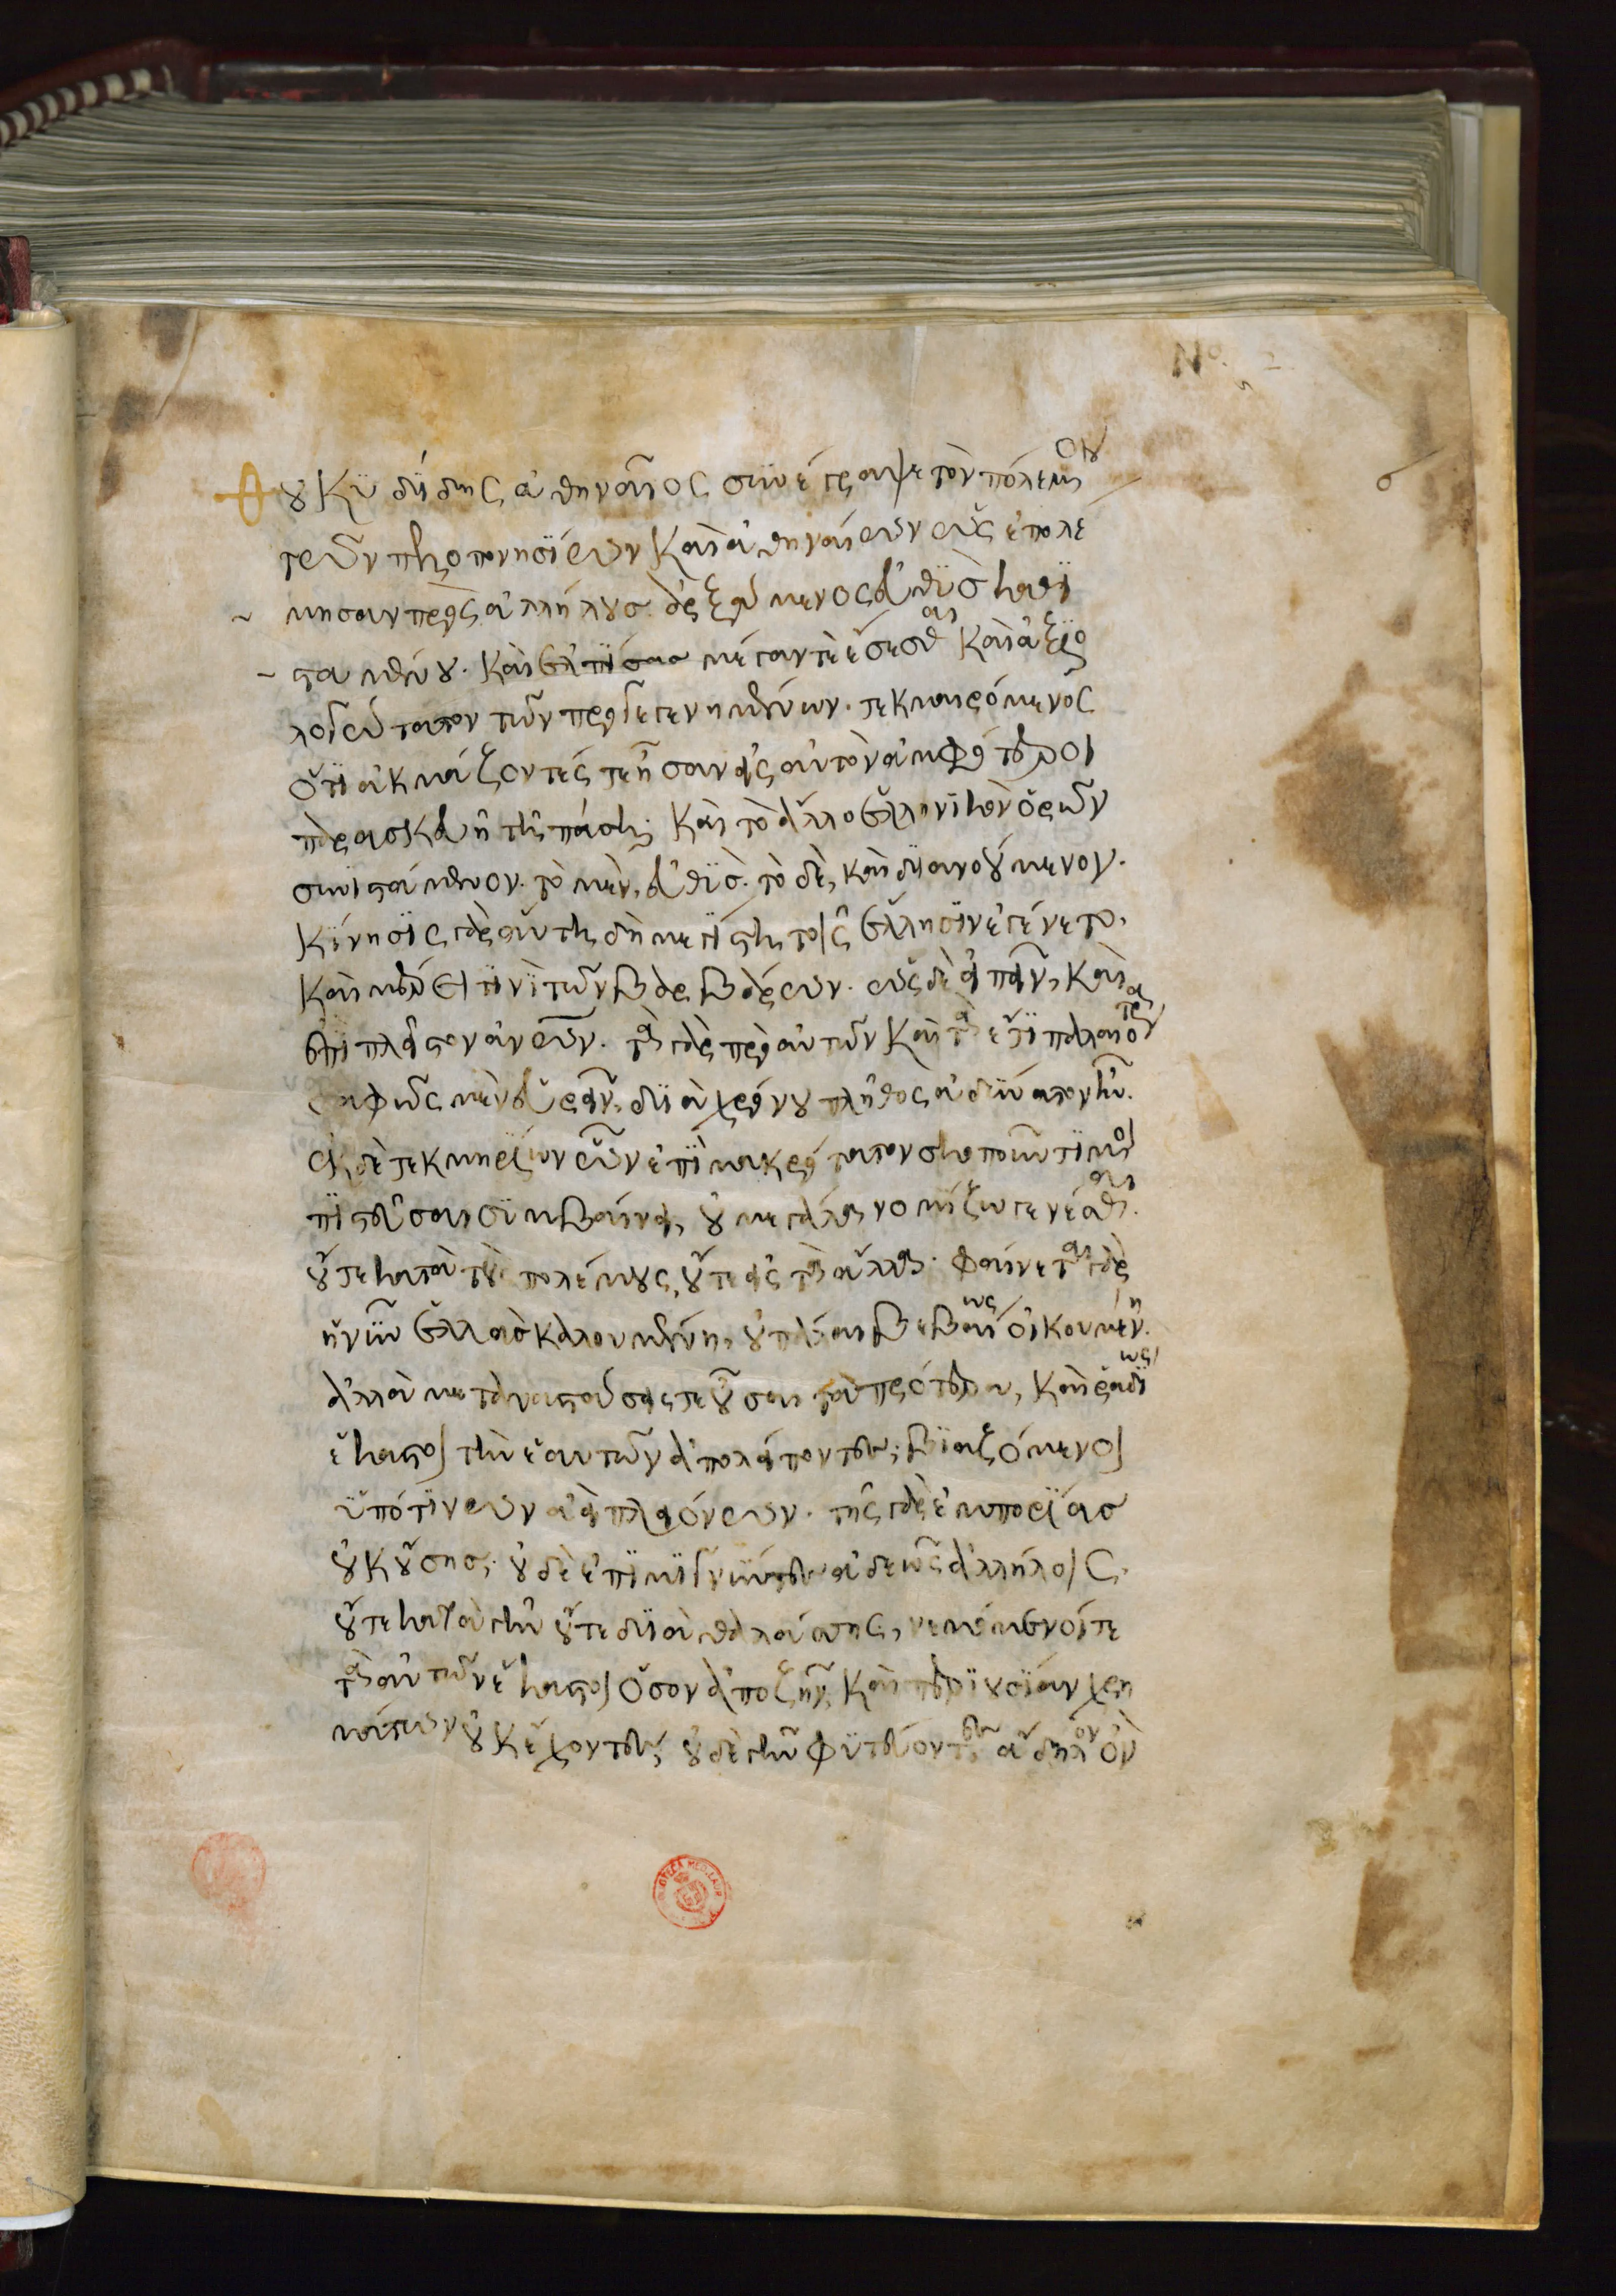 Θουκυδίδης ἀθηναῖος συνέγραψε τὸν πόλεμον
τῶν πελοπονησίων καὶ ἀθηναίων ὡς ἐπολέ
μησαν πρὸς ἀλλήλους· ἀρξάμενος εὐθὺς καθι
σταμένου· καὶ ἐλπίσας μέγαν τε ἔσεσθαι καὶ ἀξιο
λογώτατον τῶν προγεγενημένων· τεκμαιρόμενος
ὅτι ἀκμάζοντές τε ἦσαν ἐς αὐτὸν ἀμφότεροι
παρασκευῇ τῇ πάσῃ· καὶ τὸ ἄλλο ἑλληνικὸν ὁρῶν
συνιστάμενον· τὸ μὲν, εὐθὺς· τὸ δὲ, καὶ διανοούμενον·
κίνησις γὰρ αὕτη δὴ μεγίστη τοῖς ἕλλησιν ἐγένετο,
καὶ μέρει τινὶ τῶν βαρβάρων· ὡς δὲ εἰπεῖν, καὶ
ἐπὶ πλεῖστον ἀνῶν· τὰ γὰρ πρὸ αὐτῶν καὶ τὰ ἔτι παλαιότερα
σαφῶς μὲν εὑρεῖν, διὰ χρόνου πλῆθος ἀδύνατον ἦν·
ἐκ δὲ τεκμηρίων ὧν ἐπὶ μακρότατον σκοποῦντί μοι
πιστεῦσαι συμβαίνει, οὐ μεγάλα νομίζω γενέσθαι·
οὔτε κατὰ τοὺς πολέμους, οὔτε ἐς τὰ ἄλλα· φαίνεται γὰρ
ἡ νῦν ἑλλὰς καλουμένη, οὐ πάλαι βεβαίως οἰκουμένη·
ἀλλὰ μεταναστάσεις τε οὖσαι τὰ πρότερα, καὶ ῥαδίως
ἕκαστοι τὴν ἑαυτῶν ἀπολείποντες, βιαζόμενοι
ὑπό τινων ἀεὶ πλειόνων· τῆς γὰρ ἐμπορίας
οὐκ οὔσης· οὐδὲ ἐπιμιγνύντες ἀδεῶς ἀλλήλοις·
οὔτε κατὰ γῆν οὔτε διὰ θαλάσσης, νεμόμενοί τε
τὰ αὐτῶν ἕκαστοι ὅσον ἀποζῆν, καὶ περιουσίαν χρη
μάτων οὐκ ἔχοντες, οὐδὲ γῆν φυτεύοντες ἄδηλον ὂν